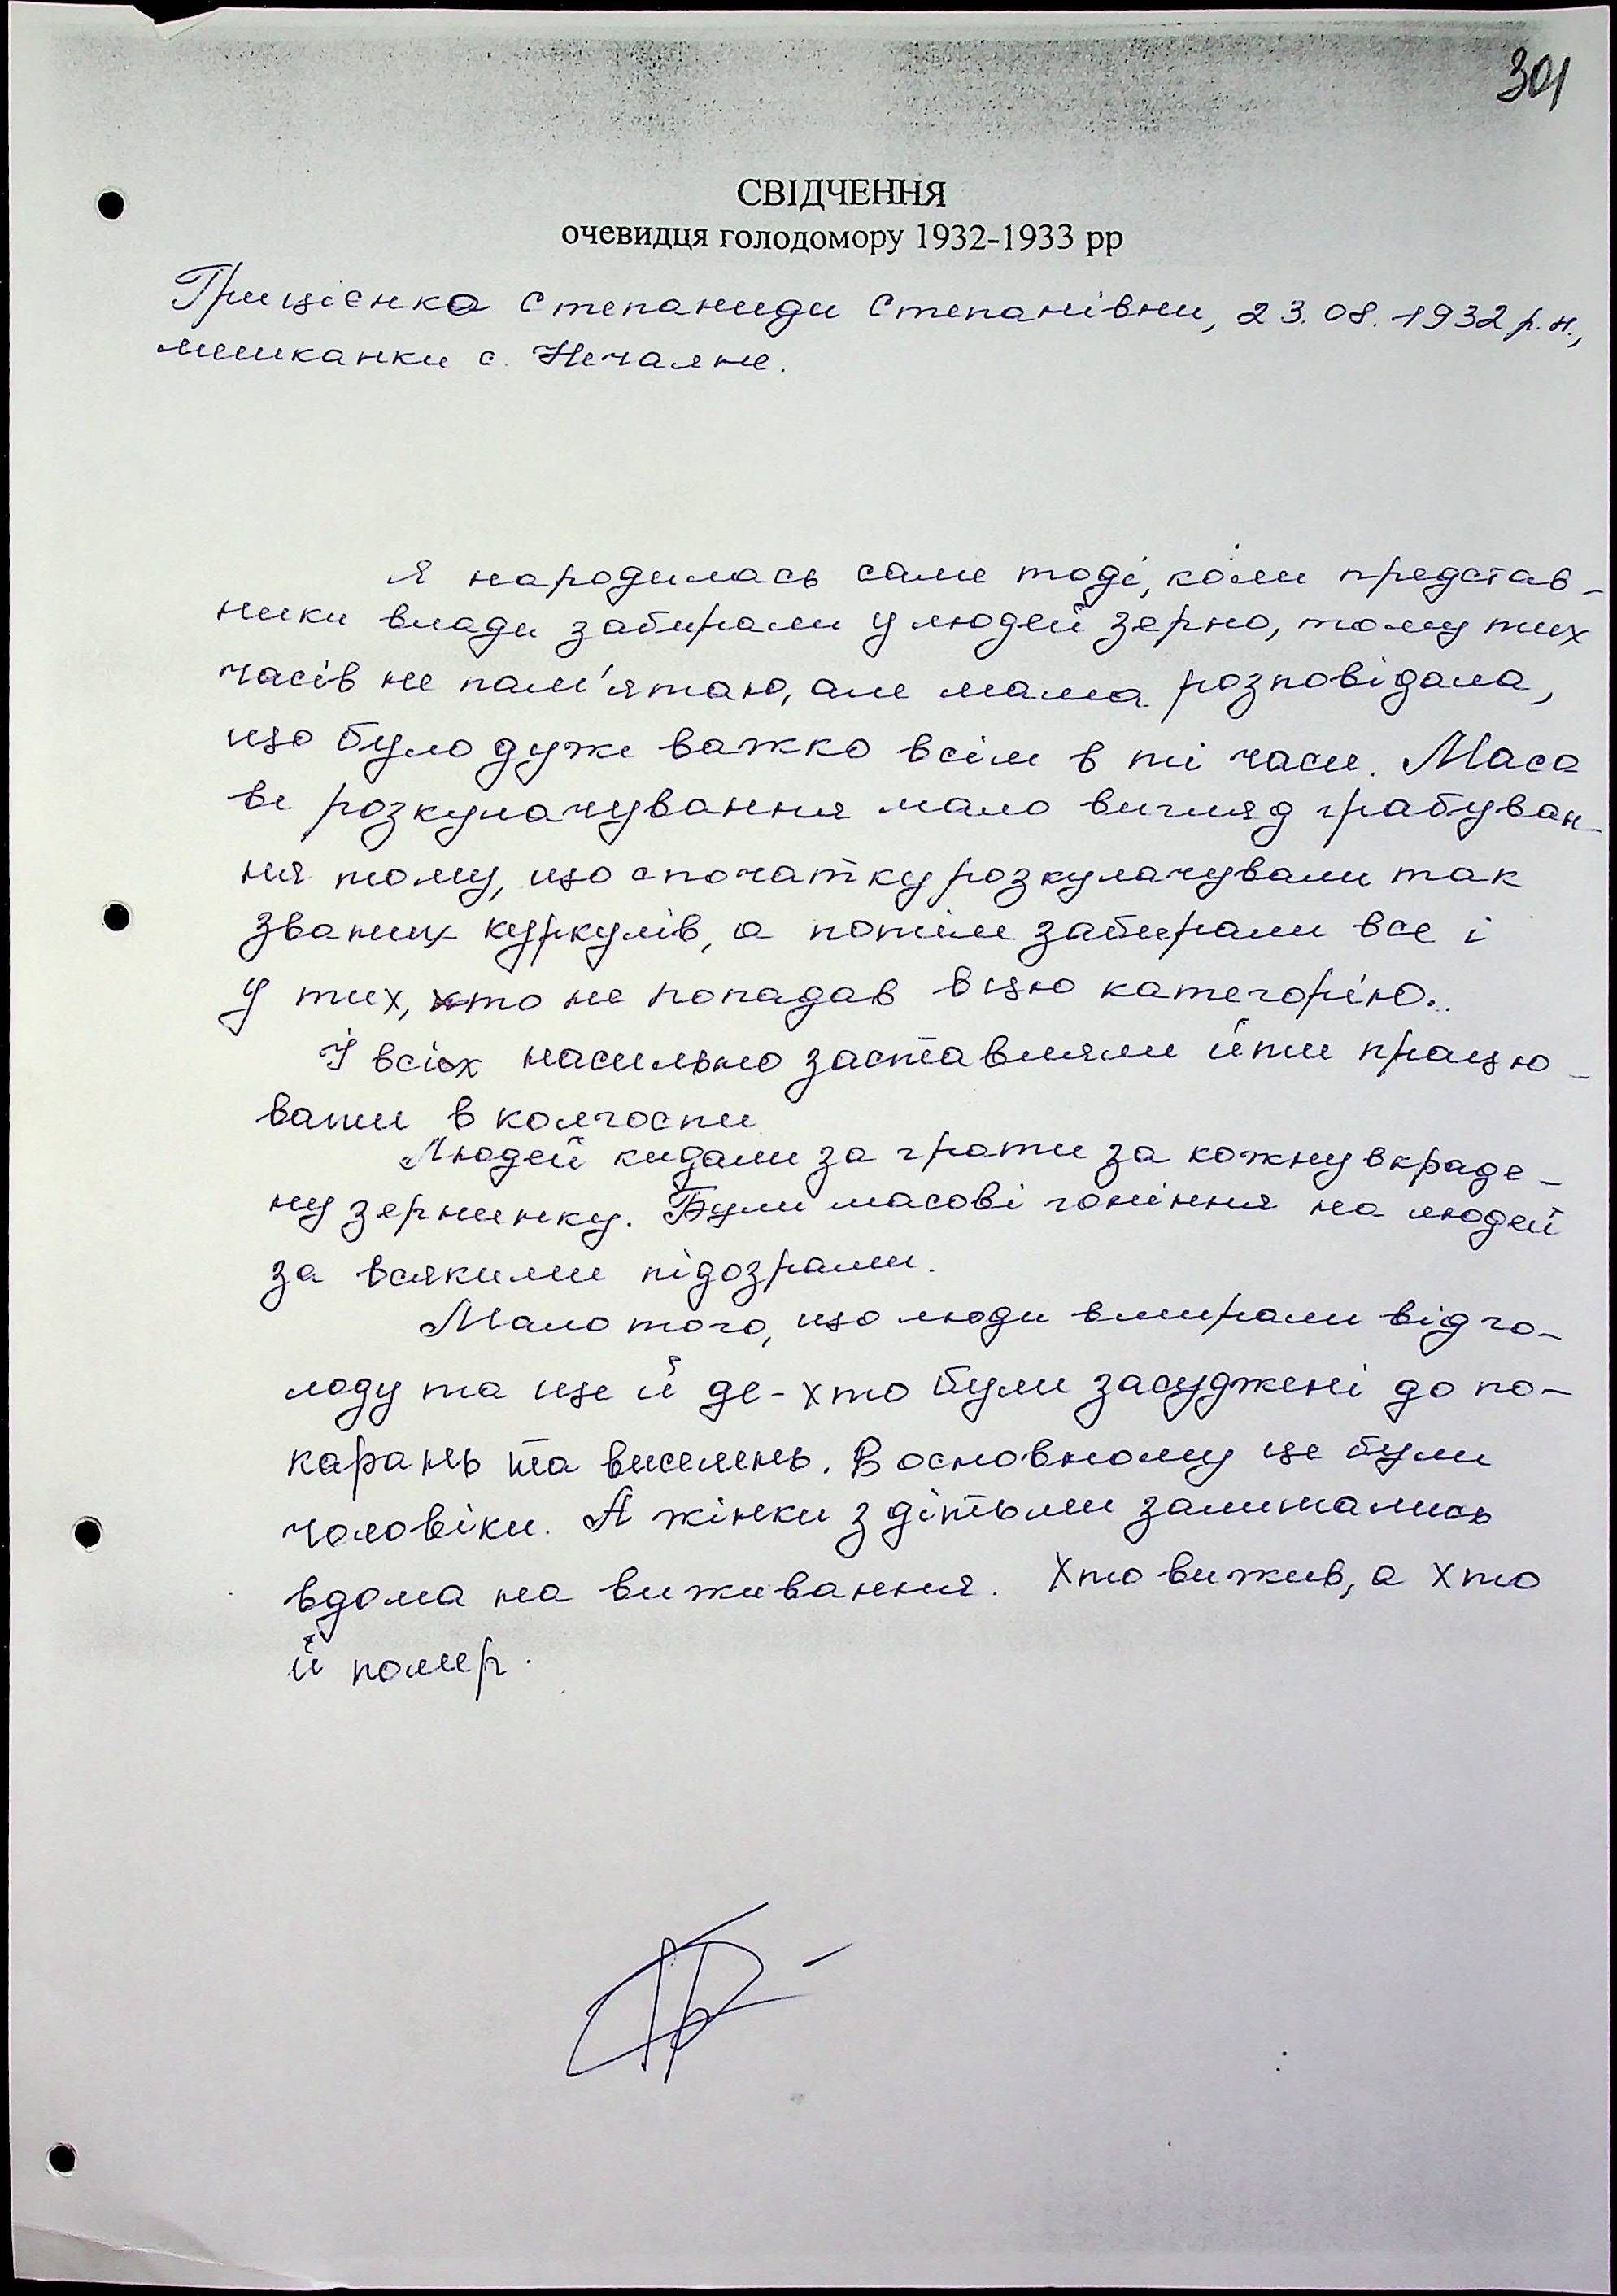 301
СВІДЧЕННЯ
очевидця голодомору 1932-1933 рр
Грицієнко Степаниди Степанівни, 23.08.1932 р.н.,
мешканки с. Нечаяне.
Я народилась саме тоді, коли представ-
ники влади забирали у людей зерно, тому тих
часів не пам'ятаю, але мама розповідала,
що було дуже важко всім в ті часи. Масо
ве розкулачування мало вигляд грабуван-
ня тому, що спочатку розкулачували так
званих куркулів, а потім забирали все і
у тих, хто не попадав в цю категорію.
І всіх насильно заставляли йти працю-
вати в колгоспи
Людей кидали за грати за кожну вкраде-
ну зернинку. Були масові гоніння на людей
за всякими підозрами.
Мало того, що люди вмирали від го-
лоду та ще й де-хто були засуджені до по-
карань та виселень. В основному це були
чоловіки. А жінки з дітьми залишались
вдома на виживання. Хто вижив, а хто
й помер.